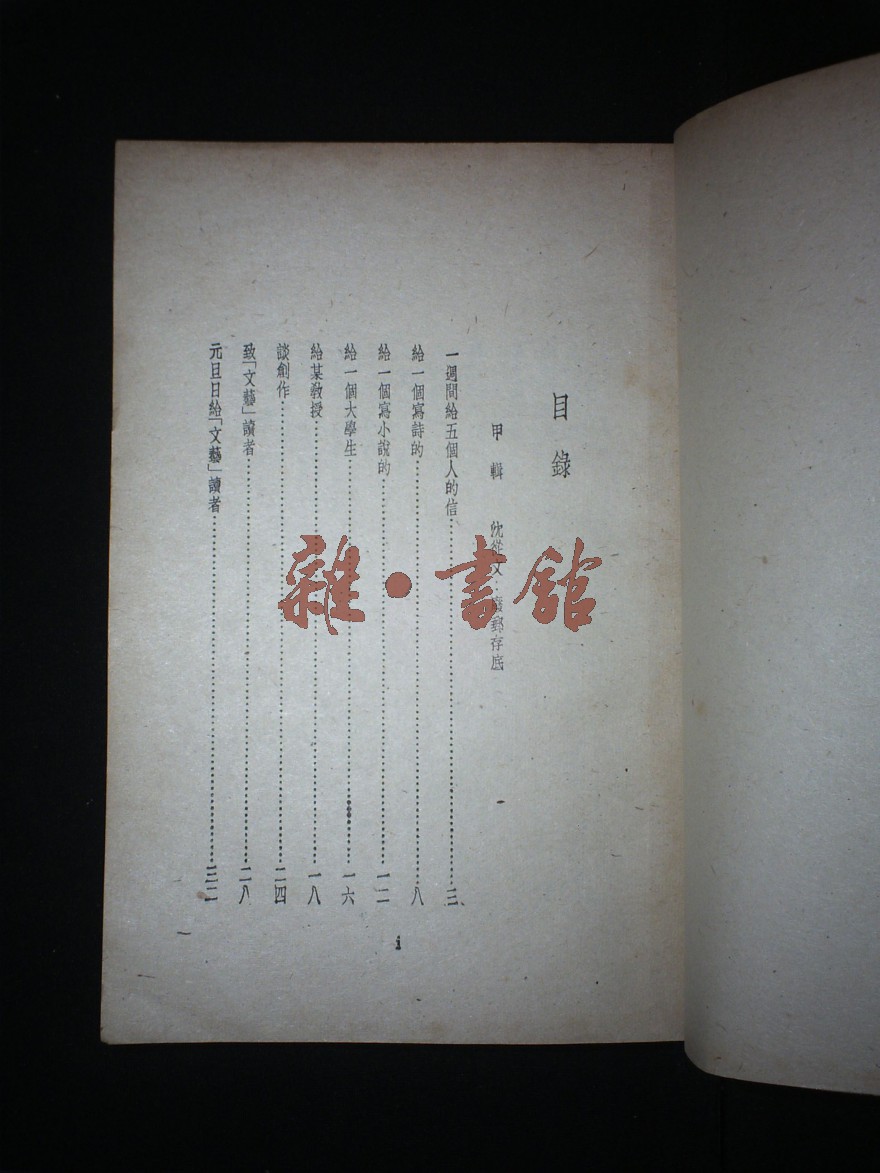 目錄
甲輯 沈從文：廢郵存底
一週間給五個人的信……三
給一個寫詩的……八
給一個寫小說的……一二
給一個大學生……一六
給某教授……一八
談創作……二四
致「文藝」讀者……二八
元旦日給「文藝」讀者……三二
i
雜·書館